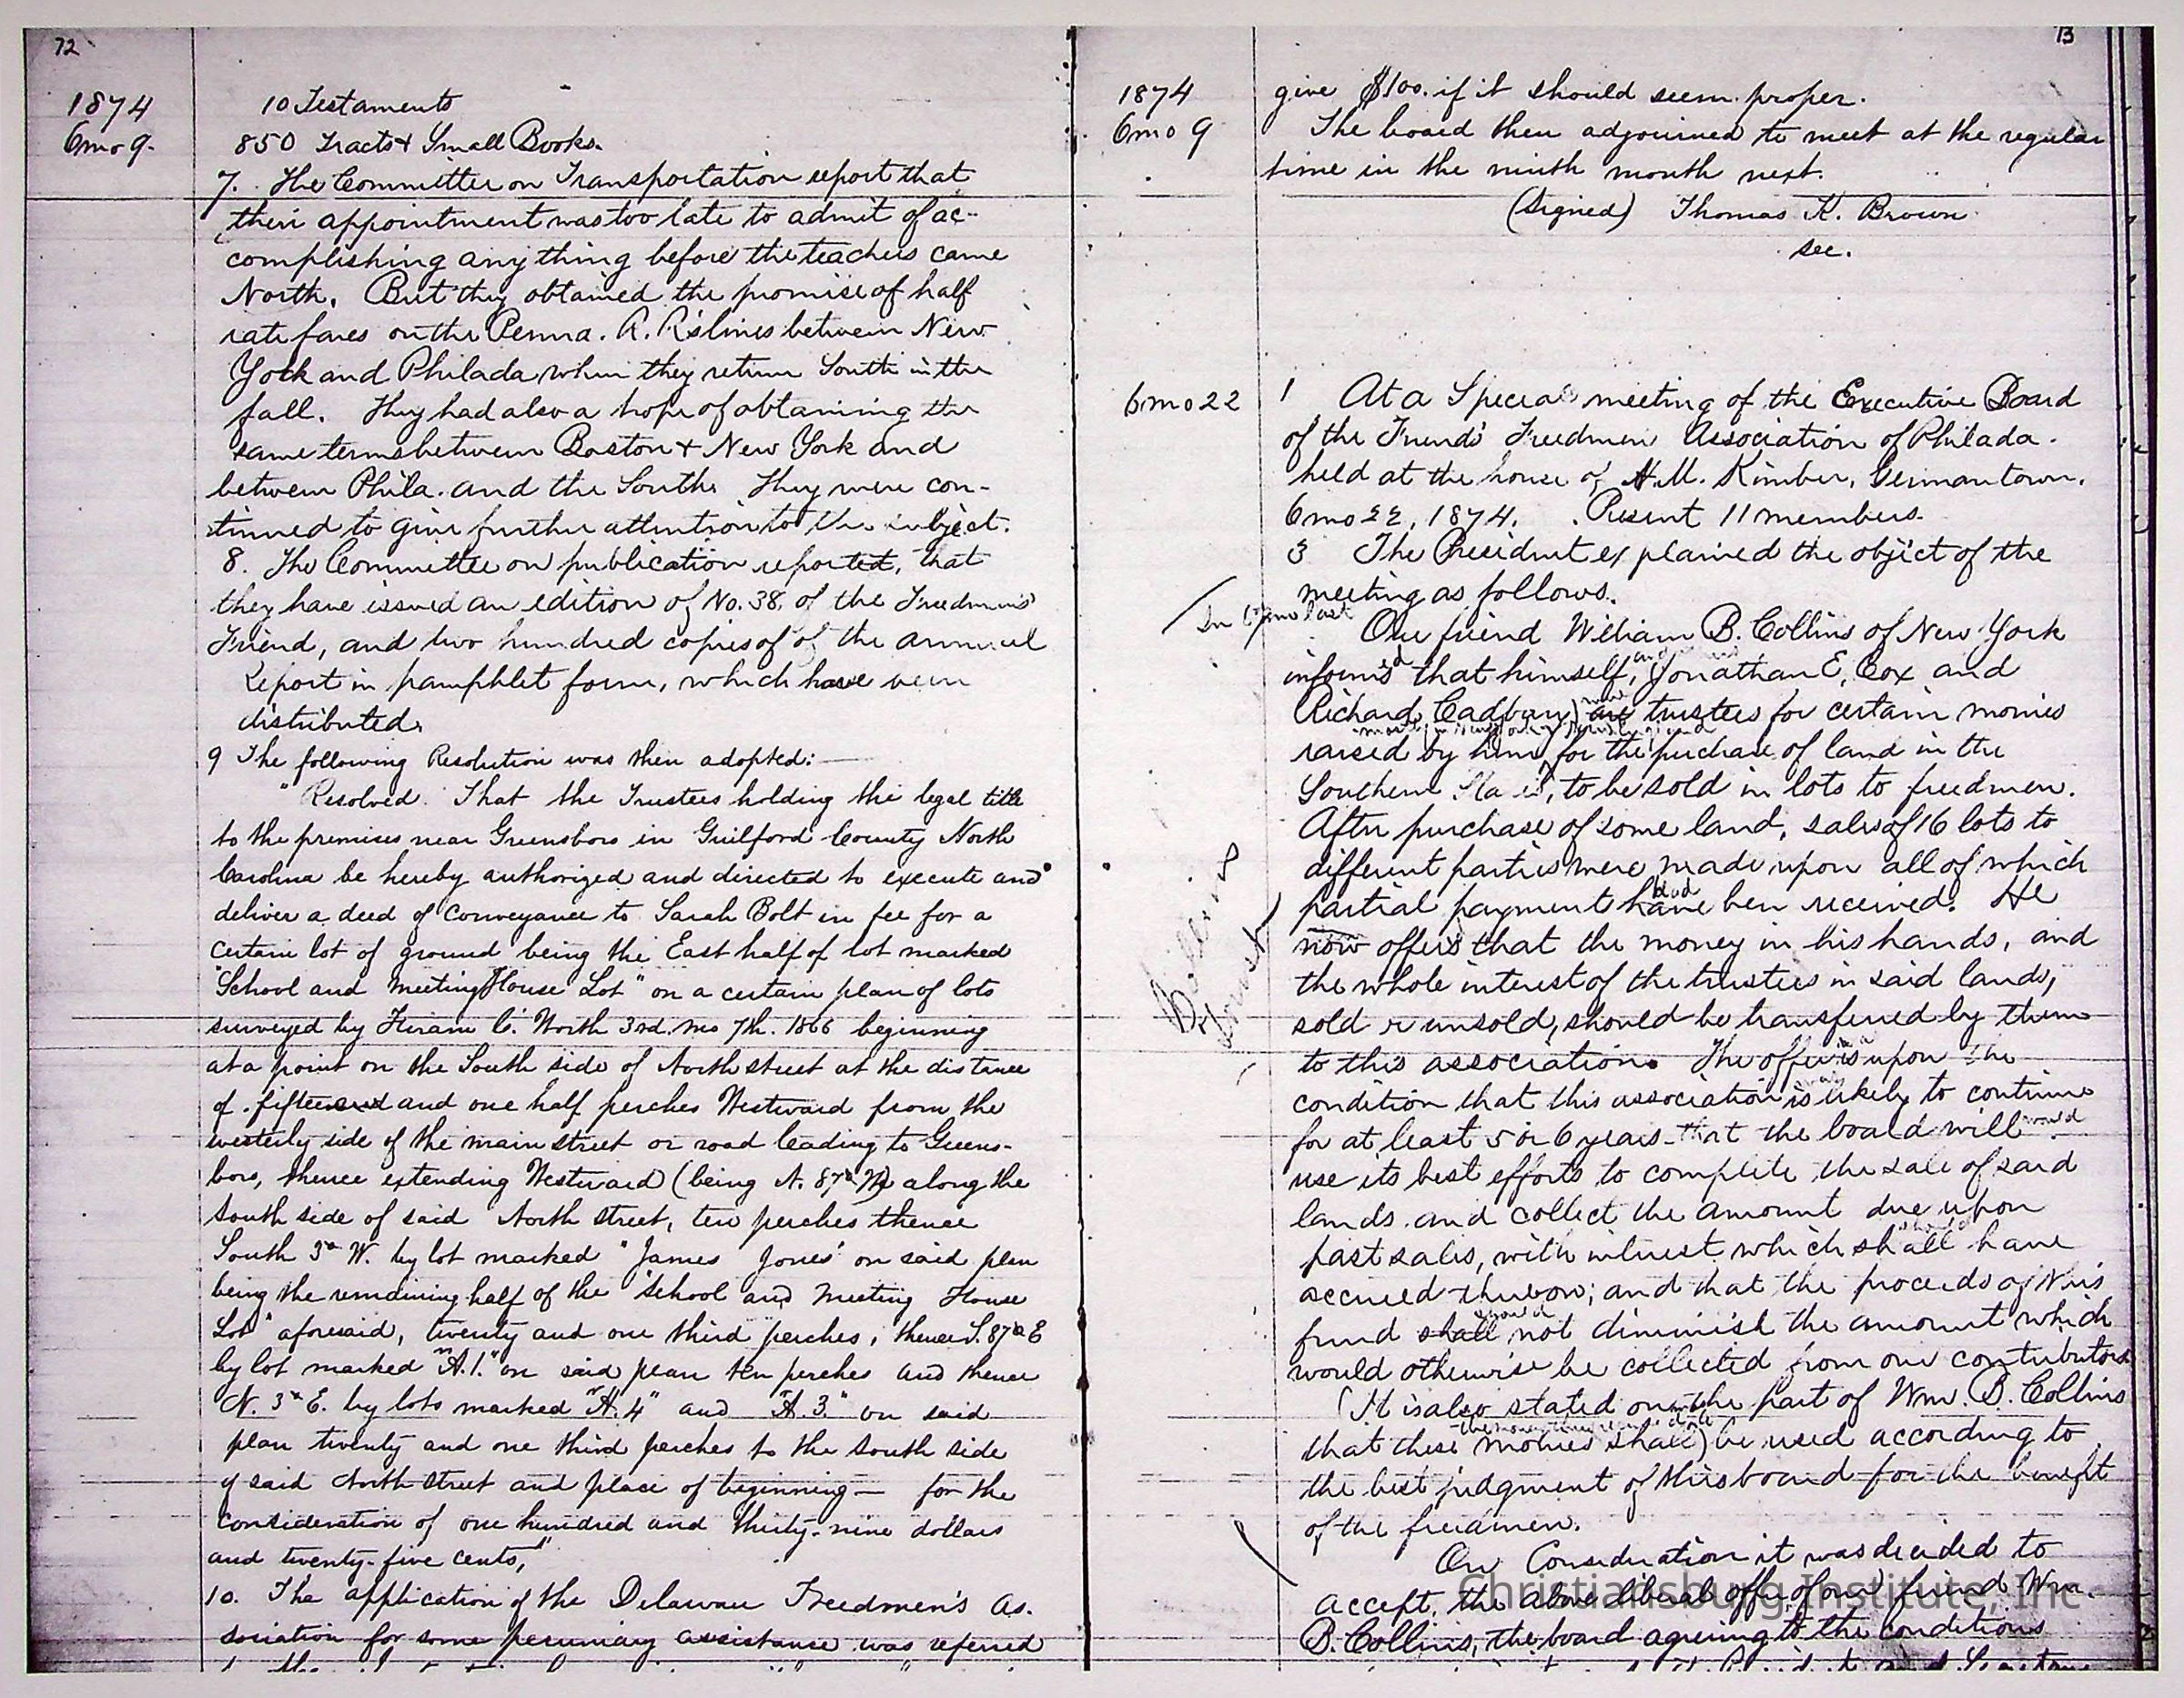 72
1874
6mo 9.
10 Testaments
850 Tracts & Small Books.
7. The Committee on Transportation report that
their appointment was too late to admit of ac-
complishing anything before the teachers came
North. But they obtained the promise of half
rate fares on the Penna. R. R's lines between New
York and Philada when they return South in the
fall. They had also a hope of obtaining the
same terms between Boston & New York and
between Phila. and the South. They were con-
tinued to give further attention to the subject.
8. The Committee on publication reported, that
they have issued an edition of No. 38, of the Freedmen's
Friend, and two hundred copies of of the annual
Report in pamphlet form, which have been
distributed.
9 The following Resolution was then adopted:—
"Resolved. That the Trustees holding the legal title
to the premises near Greensboro in Guilford County North
Carolina be hereby authorized and directed to execute and
deliver a deed of conveyance to Sarah Bolt in fee for a
certain lot of ground being the East half of lot marked
"School and Meeting House Lot" on a certain plan of lots
surveyed by Hiram C. Worth 3rd. mo 7th. 1866 beginning
at a point on the South side of North street at the distance
of fifteen and and one half perches Westward from the
westerly side of the main street or road leading to Greens-
boro, thence extending Westward (being N. 87° W) along the
South side of said North street, ten perches thence
South 3° W. by lot marked "James Jones" on said plan
being the remaining half of the "School and Meeting House
Lot" aforesaid, twenty and one third perches, thence S. 87° E
by lot marked "A.1." on said plan ten perches and thence
N. 3° E. by lots marked "A. 4" and "A. 3." on said
plan twenty and one third perches to the South side
of said North street and place of beginning— for the
consideration of one hundred and thirty-nine dollars
and twenty-five cents,"
10. The application of the Delaware Freedmen's As-
sociation for some pecuniary assistance was referred
73
1874
6mo 9
give $100. if it should seem proper.
The board then adjourned to meet at the regular
time in the ninth month next.
(Signed) Thomas K. Brown
sec.
6mo 22
1 At a Special meeting of the Executive Board
of the Friends' Freedmen Association of Philada.
held at the house of H. M. Kimber, Germantown,
6mo 22, 1874. Present 11 members.
3 The President explained the object of the
meeting as follows.
In last
Our friend William B. Collins of New York
informed that himself, Jonathan E. Cox and
Richard Cadbury) are trustees for certain monies
raised by him for the purchase of land in the
Southern States, to be sold in lots to freedmen.
After purchase of some land, sales of 16 lots to
different parties were made upon all of which
had
partial payments have been received. He
now offers that the money in his hands, and
the whole interest of the trustees in said lands,
sold or unsold, should be transferred by them
to this association. The offer is upon the
condition that this association is likely to continue
for at least 5 or 6 years that the board will would
use its best efforts to complete the sale of said
lands. and collect the amount due upon
should
past sales, with interest which shall have
accrued thereon; and that the proceeds of this
should
fund shall not diminish the amount which
would otherwise be collected from our contributors
(It is also stated on the part of Wm. B. Collins
that these monies shall) be used according to
the best judgment of this board for the benefit
of the freedmen.
On Consideration it was decided to
accept, the above liberal offer of our friend Wm.
B. Collins, the board agreeing to the conditions
Collins
trust
Christiansburg Institute, Inc